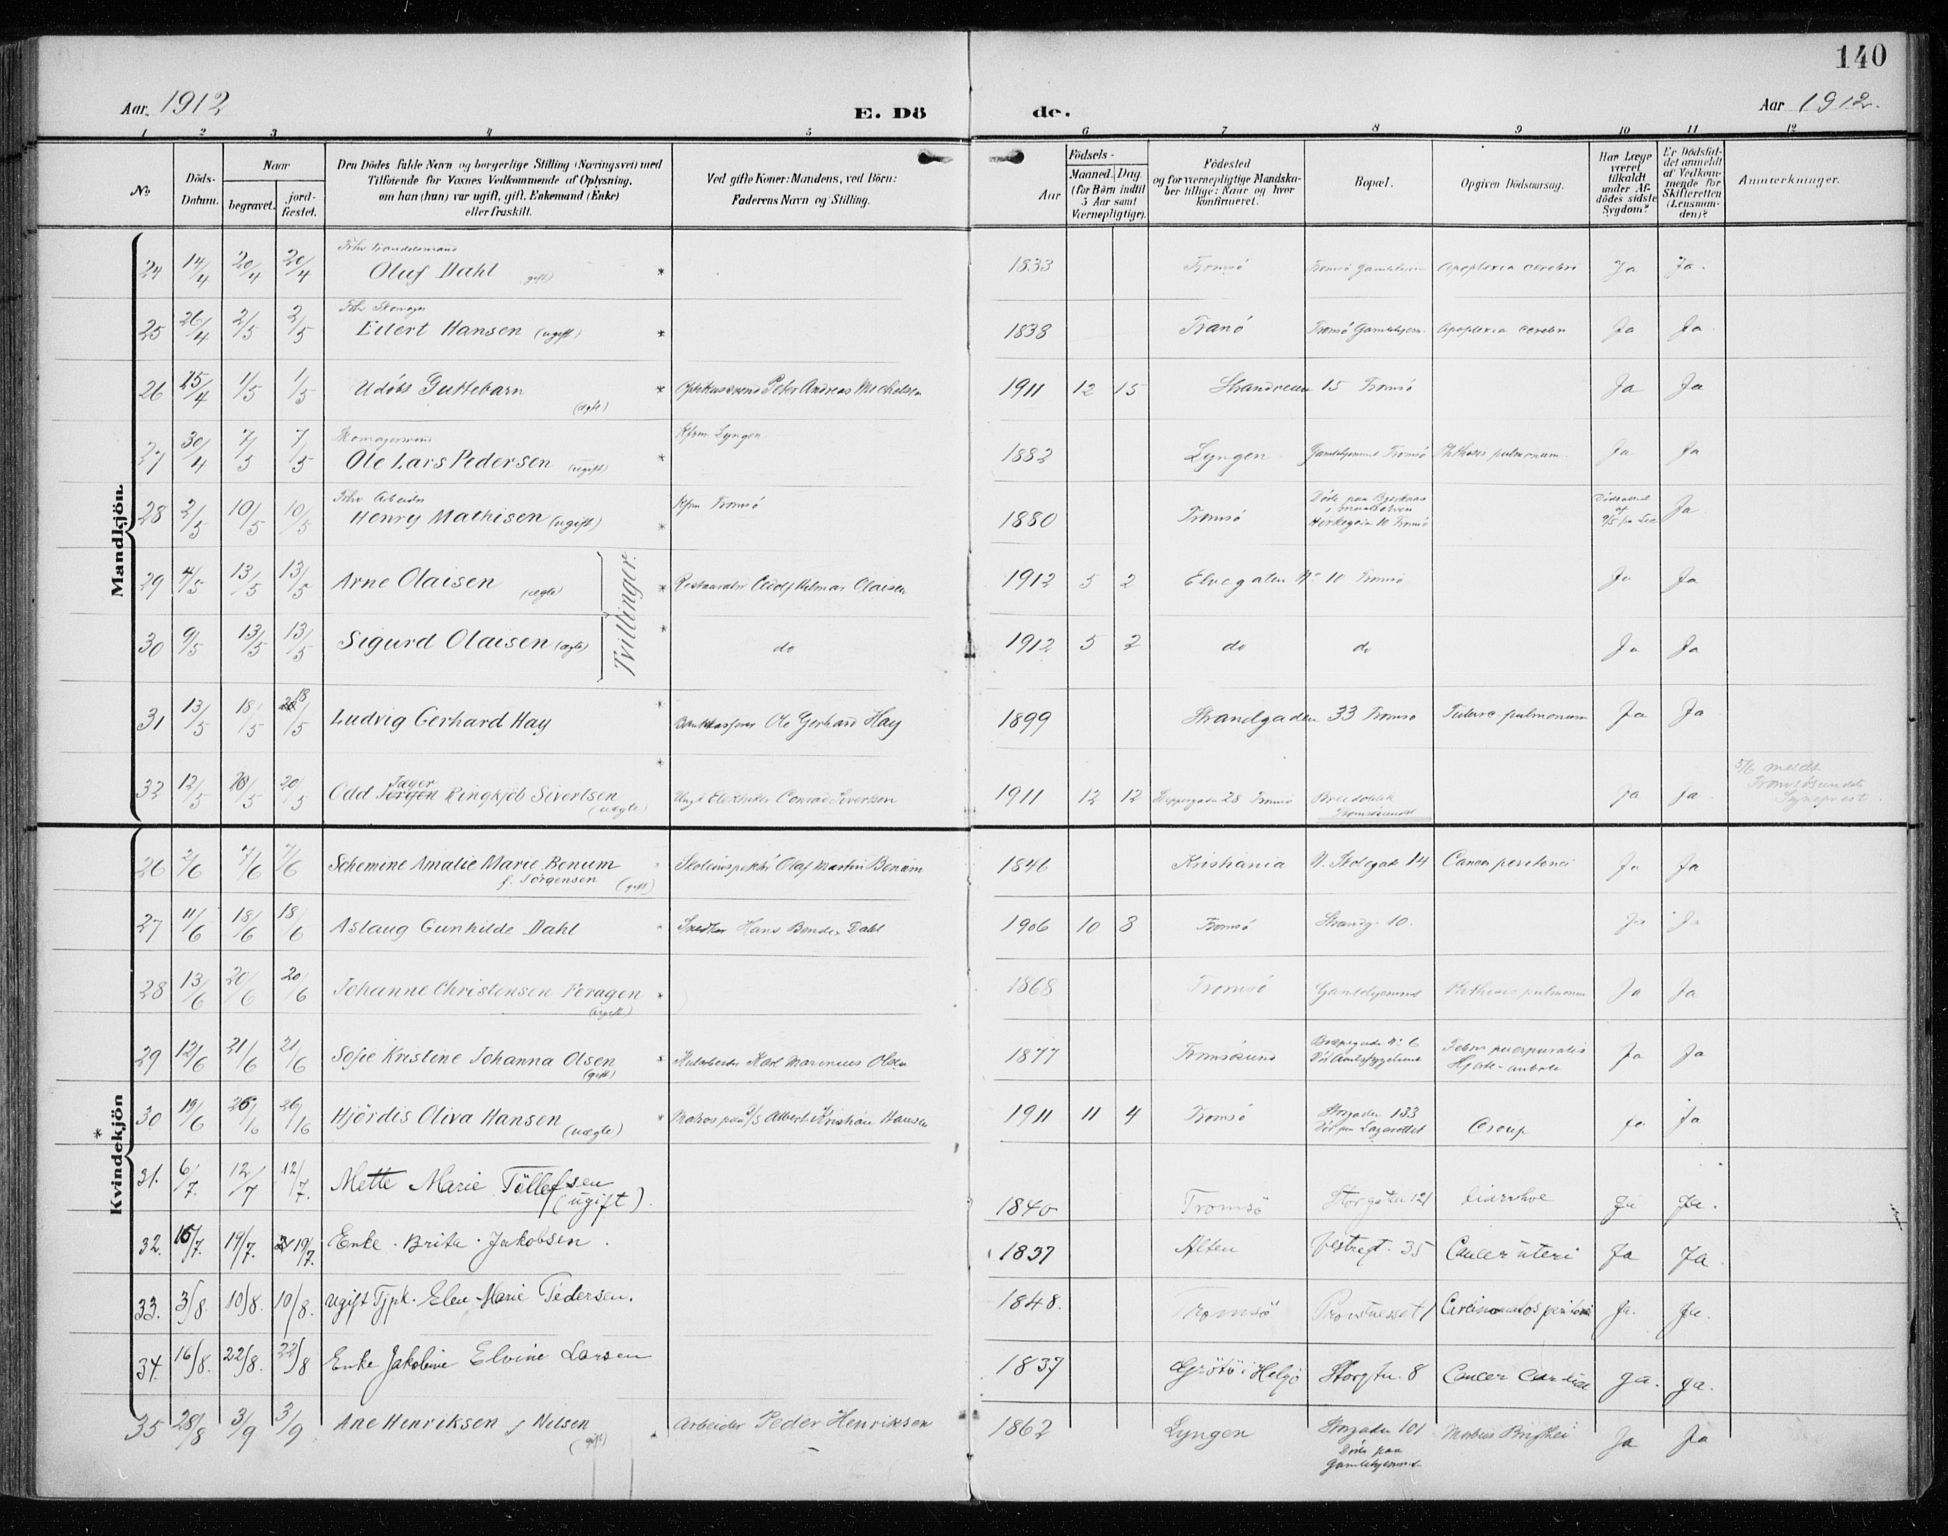 140
Aar 1912 E. Dö de. Aar 1912.
1 2 3 4 5 6 7 8 9 10 11 12
No
Döds-Datum.
Naar
begravet. jord-fæstet.
Den Dödes fulde Navn og borgerlige Stilling (Næringsvei) med
Tilföiende for Voxnes Vedkommende af Oplysning,
om han (hun) var ugift, gift, Enkemand (Enke)
eller fraskilt.
Ved gifte Koner: Mandens, ved Börn:
Faderens Navn og Stilling.
Födsels-
Aar Maaned. Dag.
(for Börn indtil
5 Aar samt
Værnepligtige).
Födested
og for værnepligtige Mandska-
ber tillige: Naar og hvor
konfirmeret.
Bopæl.
Opgiven Dödsaarsag.
Har Læge
været
tilkaldt
under Af-
dödes sidste
Sygdom?
Er Dödsfal-
det anmeldt
af Vedkom-
mende for
Skifteretten
(Lensman-
den)?
Anmærkninger.
Mandkjön.
24 14/4 20/4 20/4 Fhv Handelsmand Olaf Dahl gift * 1833 Tromsö Tromsö Gamlehjem Apoplexia cerebri Ja Ja.
25 26/4 2/5 2/5 Fhv Skomager Eilert Hansen (ugift) * 1838 Tranö Tromsö Gamlehjem Apoplexia cerebri Ja Ja
26 25/4 1/5 1/5 Udöbt Guttebarn (ægte) * Peter Andreas Michelsen 1911 12 15 Strandveien 15 Tromsö Ja Ja
27 30/4 7/5 7/5 Ole Lars Pedersen (ugift) * Kfrm. Lyngen 1882 Lyngen Gamlehjemmet Tromsö Phthisis pulmonum Ja Ja
28 2/5 10/5 10/5 Fhv Arbeider Henry Mathisen (ugift) * Kfrm Tromsö 1880 Tromsö Döde paa Tromsö Ja
29 4/5 13/5 13/5 Arne Olaisen (ægte) * Hilmar Olaisen 1912 5 2 Elvegaten No 10 Tromsö Ja Ja
Tvillinger.
30 9/5 13/5 13/5 Sigurd Olaisen (ægte) * do 1912 5 2 do do Ja Ja
31 13/5 18/5 18/5 Ludvig Gerhard Hay * Ole Gerhard Hay 1899 Strandgaden 33 Tromsö pulmonum Ja Ja
32 12/5 20/5 20/5 Odd Jæger Jørgen Ringkjöb Sivertsen (uægte) * Ungk Elektriker Conrad Sivertsen 1911 12 12 Skippergaden 28 Tromsö Tromsösund Ja Ja 5/6 meldt Tromsösundets Sogneprest
Kvindekjön *
26 2/6 7/6 7/6 Schemine Amalie Marie Benum f. Jörgensen (gift) Skoleinspektör Olaf Martin Benum 1846 Kristiania N. Skolegade 14 Cancer peritonei Ja Ja
27 11/6 18/6 18/6 Aslaug Gunhilde Dahl Snedker Hans Dahl 1906 10 8 Tromsö Strandg. 10. Ja Ja
28 13/6 20/6 20/6 Johanne Christensen Feragen (ugift) * 1868 Tromsö Gamlehjemmet Phthisis pulmonum Ja Ja
29 12/6 21/6 21/6 Sofie Kristine Johanna Olsen (gift) * Karl Marinius Olsen 1877 Tromsösund Febris puerperalis Ja Ja
30 19/6 26/6 26/6 Hjördis Oliva Hansen (uægte) * Matros paa D/S Albert Kristian Hansen 1911 11 4 Tromsö Storgaden 133 Död paa Lazarettet Croup Ja Ja
31. 6/7. 12/7 12/7. Mette Marie Töllefsen (ugift). 1840 Tromsö Storgaten 121 diarrhoe Ja Ja.
32. 15/7. 19/7. 19/7. Enke. Brita Jakobsen. 1837 Alten Vestregt. 35 Cancer uteri Ja Ja
33. 3/8. 10/8. 10/8. ugift Tjpk. Elen Marie Pedersen. 1848. Tromsö Ja. Ja.
34. 16/8. 22/8. 22/8 Enke Jakobine Elvine Larsen 1837 Grötö i Helgö Storgtn. 8 Cancer Cardiae Ja. Ja.
35 28/8 3/9 3/9 Ane Henriksen f Nilsen (gift) Arbeider Peder Henriksen 1862 Lyngen Storgaden 101 Döde paa Gamlehjemmet Morbus Brightii Ja Ja